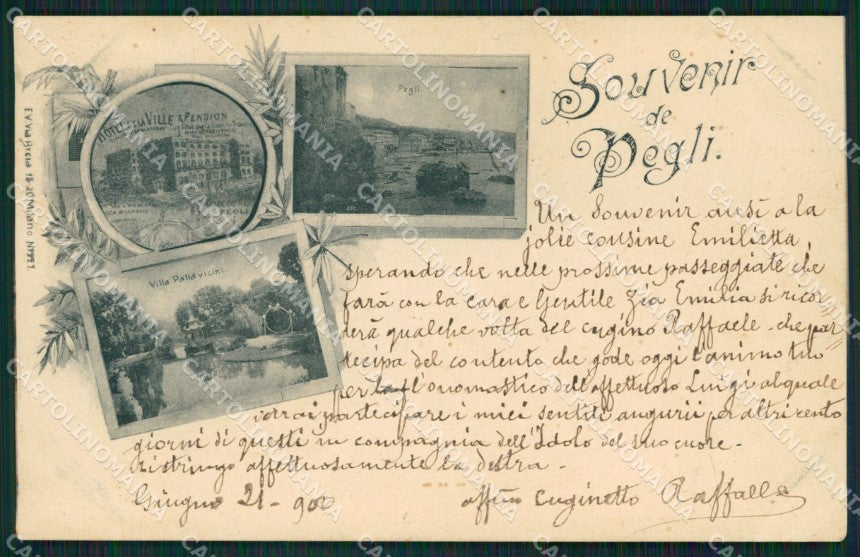 Souvenir
de
Pegli.
HOTEL de la VILLE & PENSION
Pegli
Villa Pallavicini
E.V. Via Brera 18-20 Milano N°991
Un Souvenir ancsi a la
jolie cousine Emilietta,
sperando che nelle prossime passeggiate che
farà con la cara e Gentile Zia Emilia si ricor
derà qualche volta del cugino Raffaele. che par
tecipa del contento che gode oggi l'animo tuo
per l'onomastico dell'affettuoso Luigi al quale
vorrai partecipare i miei sentiti augurii per altri cento
giorni di questi in compagnia dell'Idolo del suo cuore.
ristringo affettuosamente la destra.
Giugno 21 - 900
affmo cuginetto Raffaele
CARTOLINOMANIA